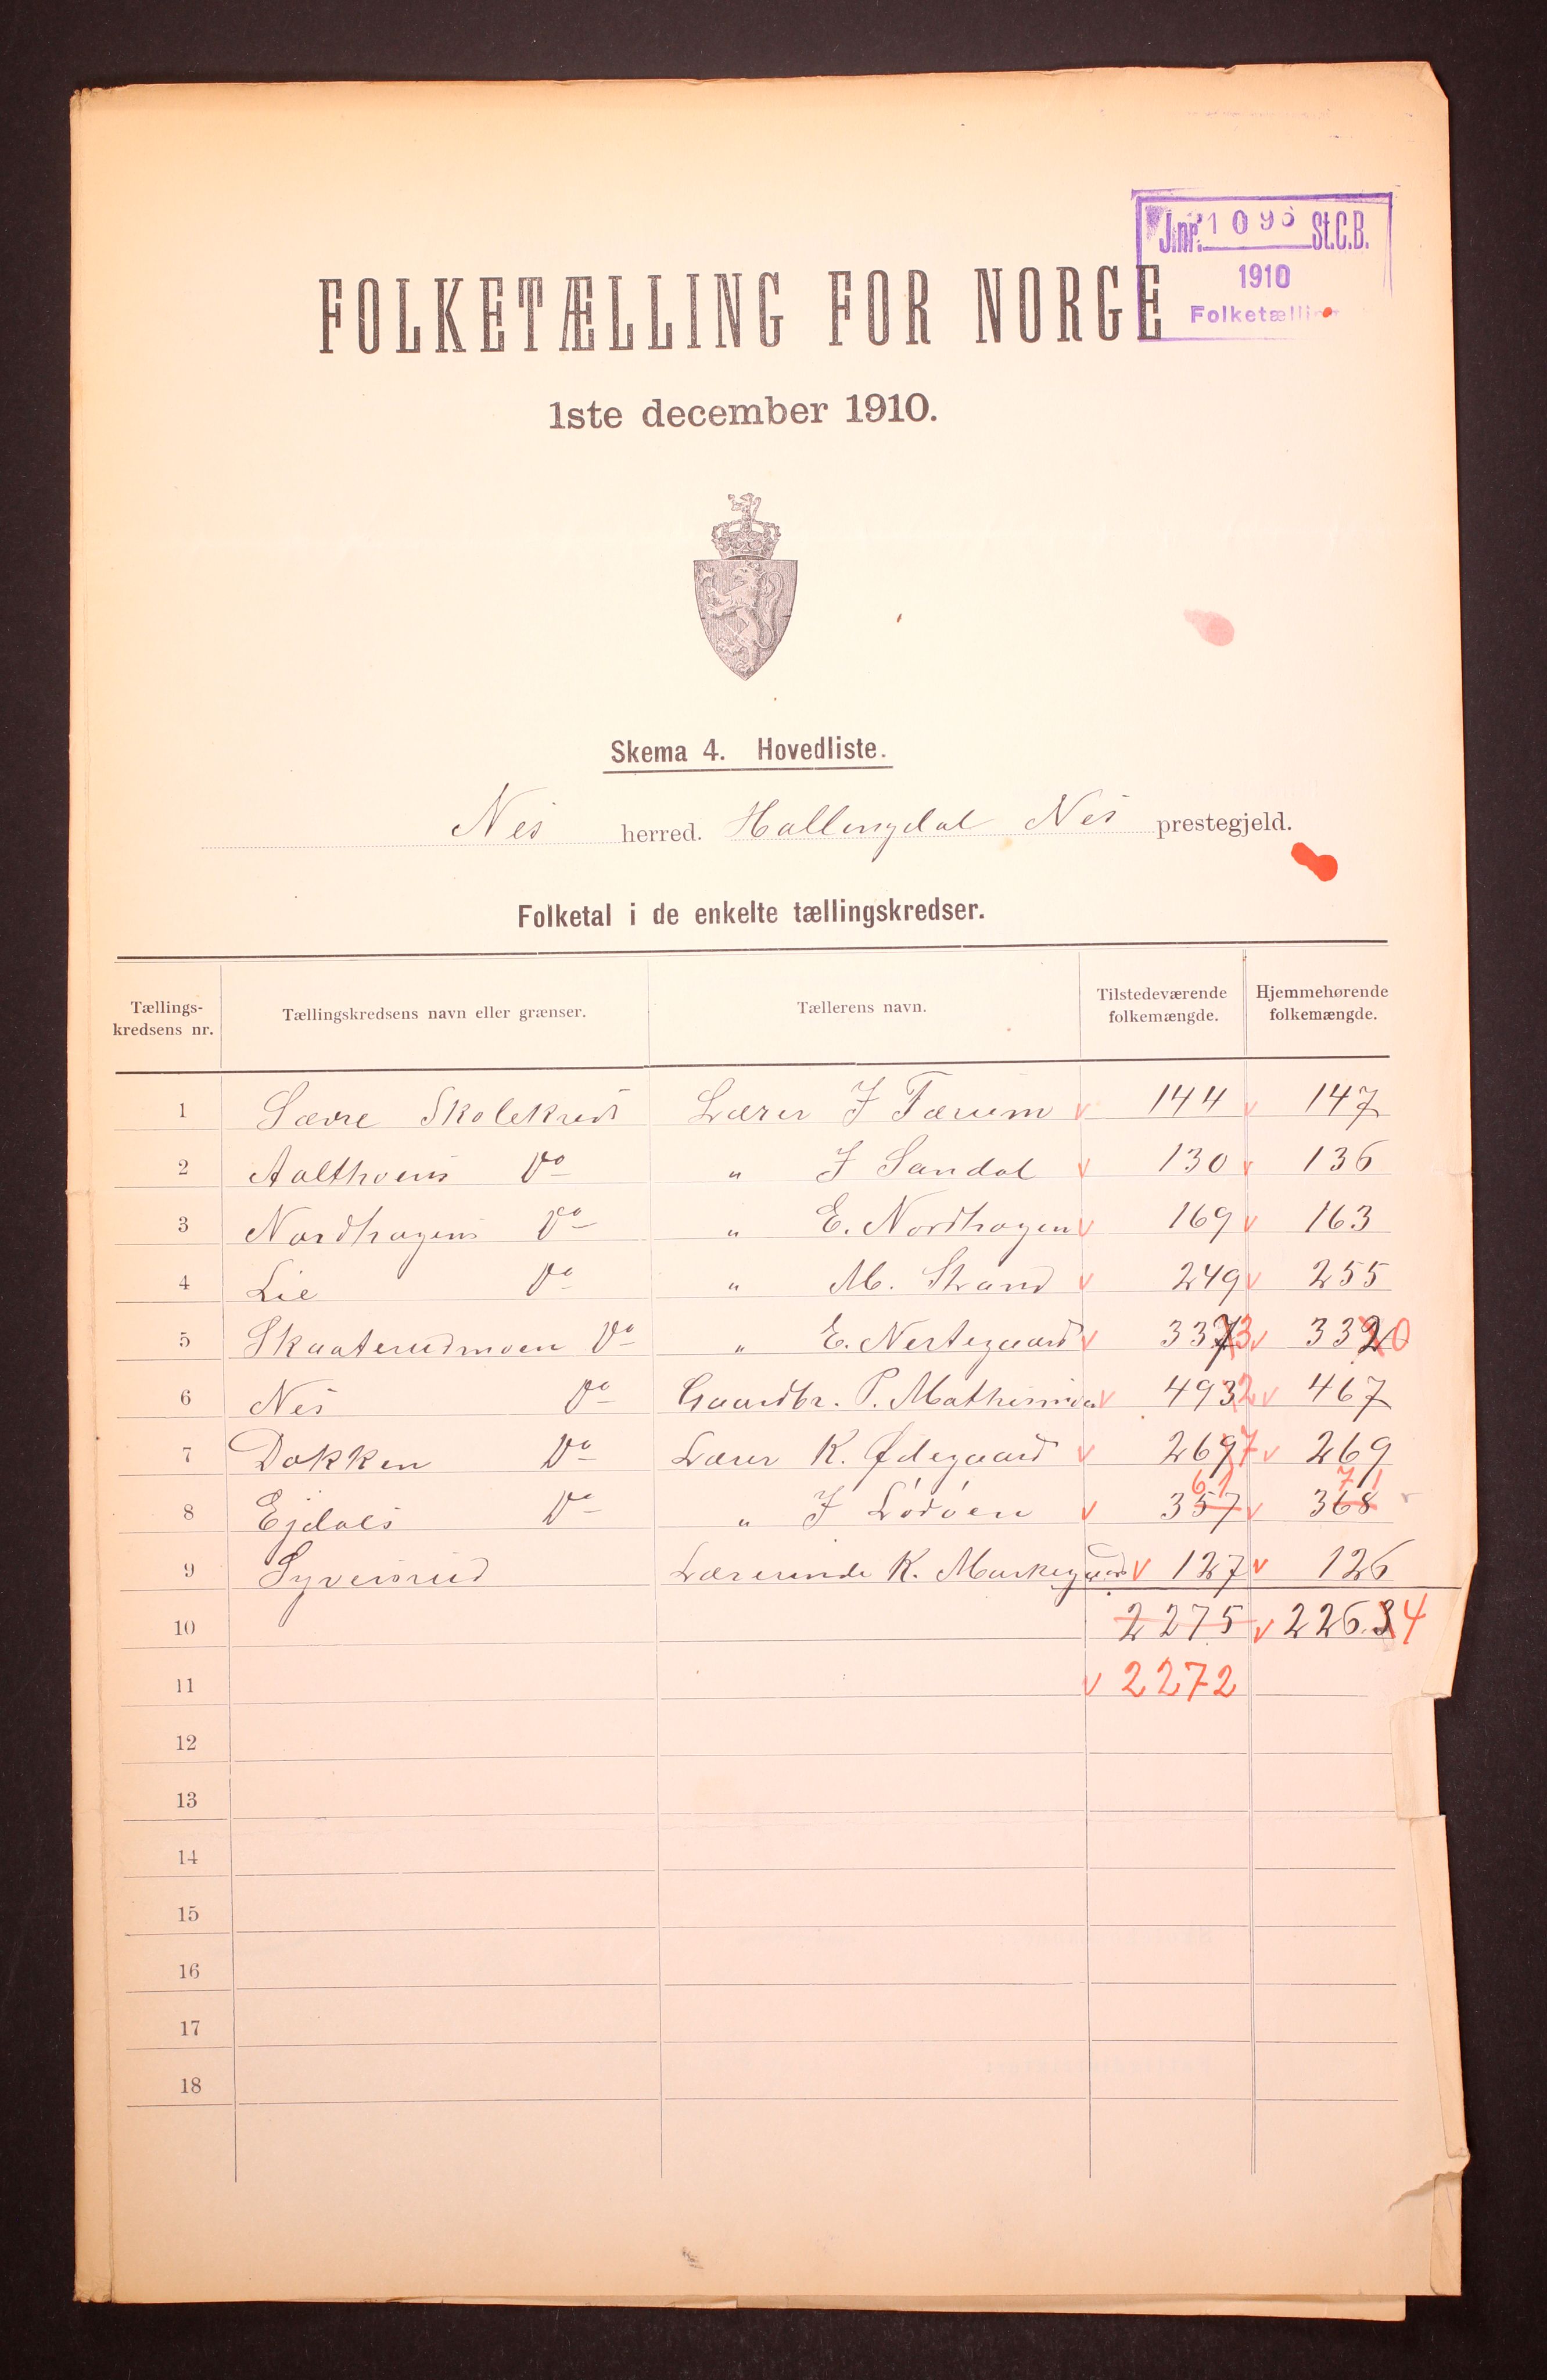 J.nr. 1096 St.C.B.
1910
Folketælling
FOLKETÆLLING FOR NORGE
1ste december 1910.
Skema 4. Hovedliste.
Nes herred. Hallingdal Nes prestegjeld.
Folketal i de enkelte tællingskredser.
Tællings-kredsens nr. Tællingskredsens navn eller grænser. Tællerens navn. Tilstedeværende folkemængde. Hjemmehørende folkemængde.
1 Sævre Skolekreds Lærer J Færum v 144 v 147
2 Aalthoens Do " J Sandal v 130 v 136
3 Nordhagens Do " E. Nordhagen v 169 v 163
4 Lie Do " M. Strand v 249 v 255
5 Skaaterudmoen Do " E. Nertegaard v 3373 v 3320
6 Nes Do Gaardbr. P. v 4932 v 467
7 Dokken Do Lærer K. Ødegaard v 2697 v 269
61 71
8 Ejdals Do " J Lødøen v 357 v 368
9 Syversrud Lærerinde K. Markegaard v 127 v 126
10 2275 v 226.34
11 v 2272
12
13
14
15
16
17
18